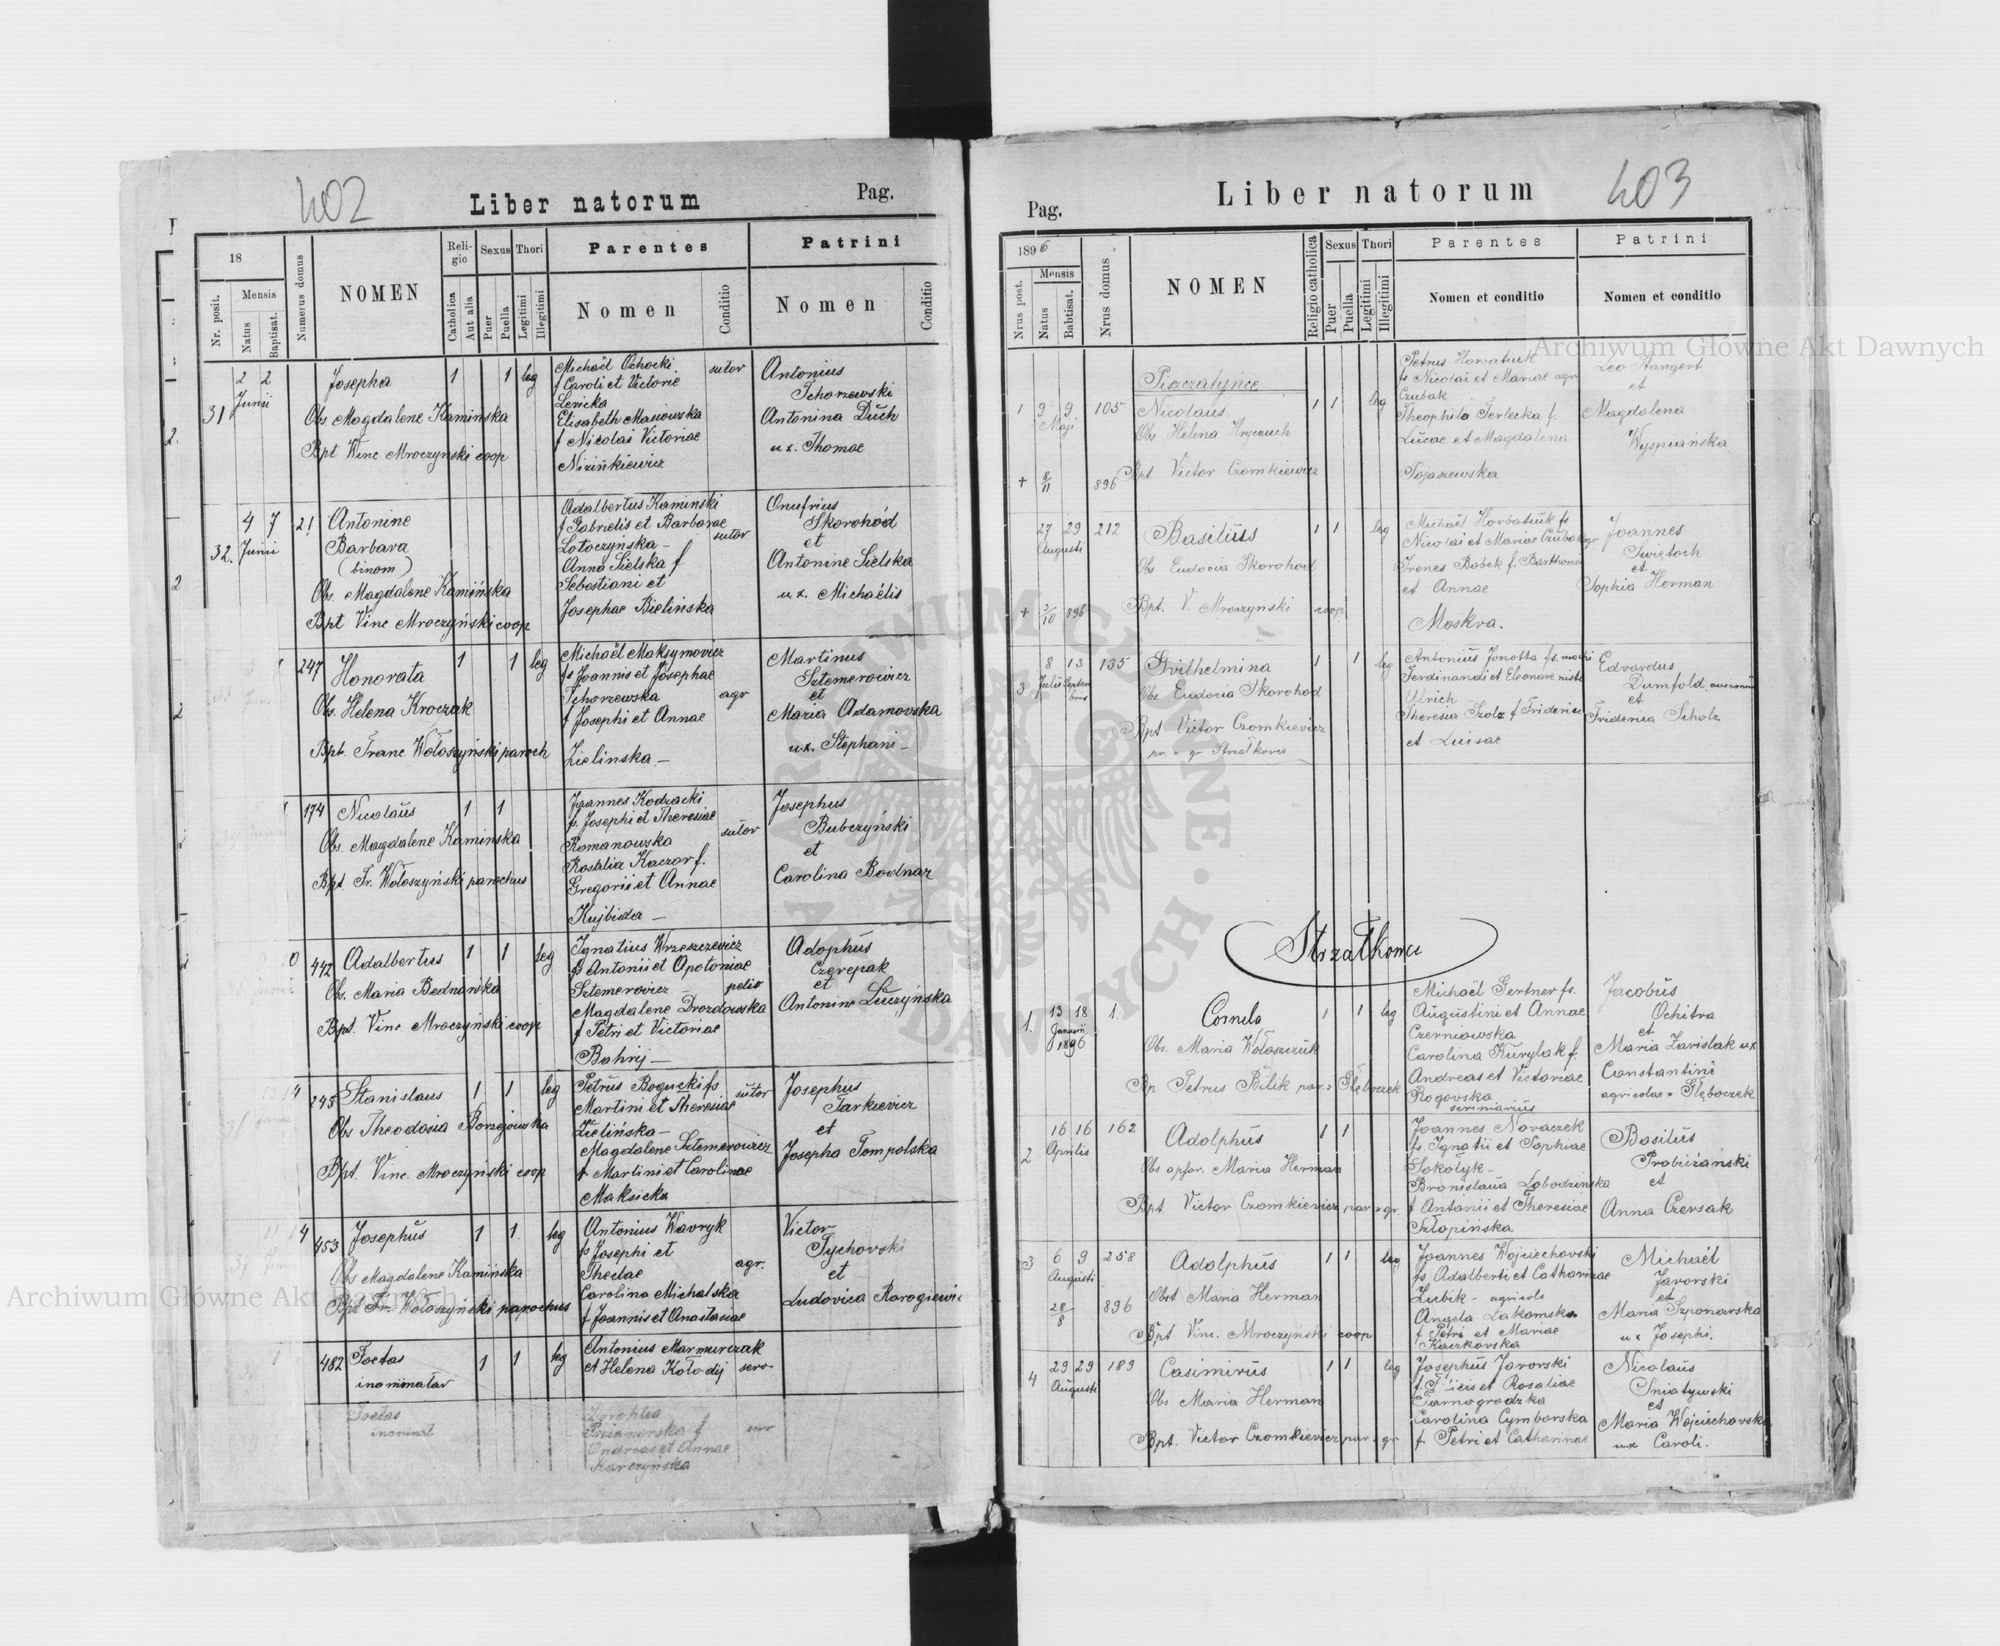 402
Liber natorum
Pag.
18
Mensis
Nr. posit.
Natus
Baptisat.
Numerus domus
NOMEN
Religio
Catholica
Aut alia
Sexus
Puer
Puella
Thori
Legitimi
Illegitimi
Parentes
Nomen
Conditio
Patrini
Nomen
Conditio
31 2 2 Junii
Josepha 1 1 leg
Obs Magdalene Kaminska
Bpt Winc Mroczynski coop
Michaël Ochocki sutor
f Caroli et Victorie
Levicka
Elisabeth Masiowska
f Nicolai Victoriae
Nizińkiewicz
Antonius
Tchorzewski
Antonina Duch
ux. Thomae
32. 4 7 Junii 21
Antonine
Barbara
(binom)
Obs. Magdalene Kamińska
Bpt Vinc Mroczyński coop
Adalbertus Kaminski
f Gabrielis et Barbarae
Lotoczyńska - sutor
Anna Sielska f
Sebestiani et
Josephae Bielińska
Onufrius
Skorohod
et
Antonine Sielska
ux. Michaëlis
247 Honorata 1 1 leg
Obs. Helena Kroczak
Bpt. Franc Wołoszyński paroch
Michaël Maksymovicz
fs Joannis et Josephae
Tchorzewska agr
f Josephi et Annae
Zielinska -
Martinus
Sztemerowicz
et
Maria Adamovska
ux. Stephani -
174 Nicolaüs 1 1
Obs. Magdalene Kaminska
Bpt. Fr. Wołoszyński parochus
Joannes Kodzacki
fs. Josephi et Theresiae
Romanowska sutor
Rosalia Kaczor f.
Gregorii et Annae
Kujbida -
Josephus
Bubczyński
et
Carolina Bodnar
442 Adalbertus 1 1 leg
Obs. Maria Bednarska
Bpt. Vinc Mroczyński coop
Ignatius Wrzeszczewicz
fs Antonii et Apoloniae
Sztemerovicz - pelio
Magdalene Drozdowska
f Petri et Victoriae
Bahrij -
Adophus
Czerepak
et
Antonine Łuczyńska
245 Stanislaus 1 1 leg
Obs Theodosia Borzejowska
Bpt. Vinc. Mroczyński coop
Petrus Bogucki fs sutor
Martini et Theresiae
Zielińska -
Magdalene Sztemerowicz
f Martini et Carolinae
Maksicka
Josephus
Tarkievicz
et
Josepha Tompolska
453 Josephus 1 1 leg
Obs Magdalene Kamińska
Bpt Fr. Wołoszyński parochus
Antonius Wavryk
fs Josephi et
Theclae agr.
Carolina Michalska
f Joannis et Anastasiae
Victor
Tychovski
et
Ludovica
482 Foetas 1 1 leg
inominatar
Antonius Marmurczak
et Helena Kołodij
Foetas
inominat
Dorohtea
f
Andreas et Annae
Karczyńska
403
Pag.
Liber natorum
1896
Mensis
Nrus post.
Natus
Babtisat.
Nrus domus
NOMEN
Religio catholica
Sexus
Puer
Puella
Thori
Legitimi
Illegitimi
Parentes
Nomen et conditio
Patrini
Nomen et conditio
Piszczatyńce
1 9 9 Maji 105 Nicolaus 1 1 leg
Obs Helena Hryczuch
Bpt. Victor Czomkiewicz
+ 8/11 896
Petrus Horbatiuk
fs Nicolai et Mariae agr
Czubak
Theophila Terlecka f.
Lucae et Magdalena
Tojaszewska
Leo Stangert
et
Magdalena
Wyspiańska
27 29 Augusti 212 Basilius 1 1 leg
Obs Eudoxia Skorohod
Bpt. V. Mroczyński coop
+ 3/10 896
Michaël Horbatiuk fs
Nicolai et Mariae Czubak agr
Irenes Bobek f. Barthomei
et Annae
Moskva.
Joannes
Swietoch
et
Sophia Herman
3 8 Julii 13 Septembris 135 Gvilhelmina 1 1 leg
Obs. Eudocia Skorohod
Bpt Victor Czomkievicz
Antonius Jonotta fs.
Ferdinandi et Eleonore
Ulrich
Theresia Szolz f Friderici
et Luisae
Edvardus
Dumfold
et
Fridenia Scholz
Strzałkowce
1. 13 18 Januarii 1896 1. Cornela 1 1 leg
Obs. Maria Wołoszczuk
Bp Petrus Bilik par. Głęboczek
Michaël Gertner fs.
Augustini et Annae
Czerniowska
Carolina Kurylak f.
Andreas et Victoriae
Rogovska
Jacobus
Ochitra
et
Maria Zavislak ux
Constantini
agricolae - Głęboczek
2 16 16 Aprilis 162 Adolphus 1 1
Obs apsor. Maria Herman
Bpt Victor Czomkiewicz par. gr.
Joannes Novaczek
fs. Ignatii et Sophiae
Sokołyk -
Bronislava Łobodzinska
f Antonii et Theresiae
Szłopińska
Basilius
Probużański
et
Anna Czersak
3 6 9 Augusti 258 Adolphus 1 1 leg
Obst Maria Herman
28/8 896
Bpt Vinc. Mroczynski coop
Joannes Wojciechovski
fs Adalberti et Catharinae
Lubik - agricola
Angela Lakomska
f Petri et Mariae
Kaczkovska
Michaël
Javorski
et
Maria Szponarska
ux Josephi.
4 29 29 Augusti 189 Casimirus 1 1 leg
Obs Maria Herman
Bpt. Victor Czomkiewicz par. gr
Josephus Javorski
et Rosaliae
Tarnogrodzka
Carolina Cymborska
f. Petri et Catharinae
Nicolaus
Sniatywski
et
Maria Wojciechovska
ux Caroli.
Archiwum Główne Akt Dawnych
Archiwum Główne Akt Dawnych
ARCHIWUM GŁÓWNE AKT DAWNYCH